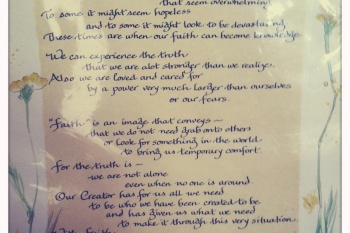 that seem overwhelming
To some it might seem hopeless
and to some it might look to be devastating
These times are when our faith can become knowledge.
We can experience the truth
that we are alot stronger than we realize.
Also we are loved and cared for
by a power very much larger than ourselves
or our fears.
"Faith" is an image that conveys ~
that we do not need grab onto others
or look for something in the world
to bring us temporary comfort.
For the truth is ~
we are not alone
even when no one is around
Our Creator has for us all we need
to be who we have been created to be
and has given us what we need
to make it through this very situation.